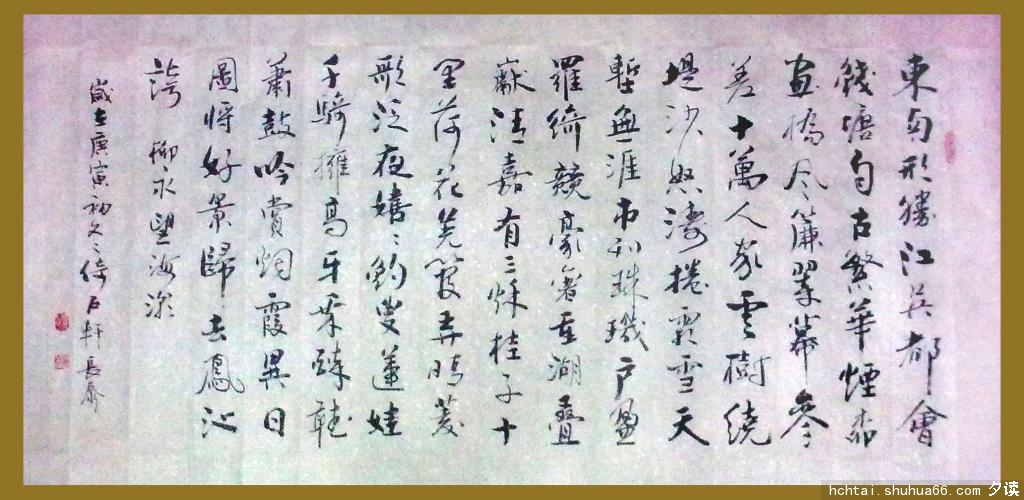 東南形勝江吳都會
錢塘自古繁華煙柳
畫橋風簾翠幕參
差十萬人家雲樹繞
堤沙怒濤捲霜雪天
塹無涯市列珠璣戶盈
羅綺競豪奢重湖疊
巘清嘉有三秋桂子十
里荷花羌管弄晴菱
歌泛夜嬉嬉釣叟蓮娃
千騎擁高牙乘醉聽
簫鼓吟賞烟霞異日
圖將好景歸去鳳池
誇 柳永望海潮
歲在庚寅初冬倚石軒長泰
hchtai.shuhua66.com 夕读